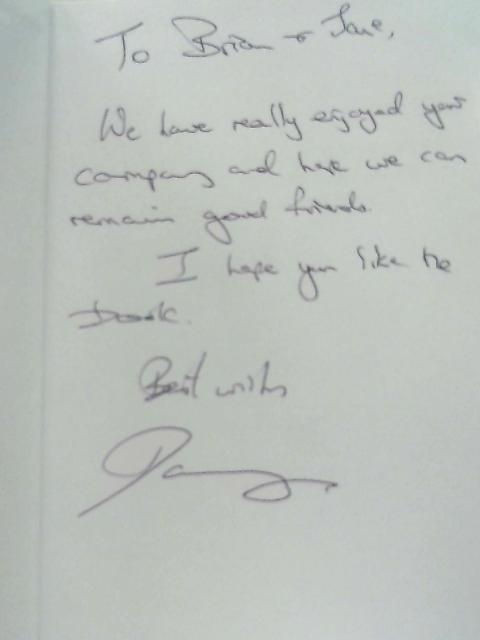 To Brian + Jane,
We have really enjoyed your
company and hope we can
remain good friends.
I hope you like the
book.
Best wishes